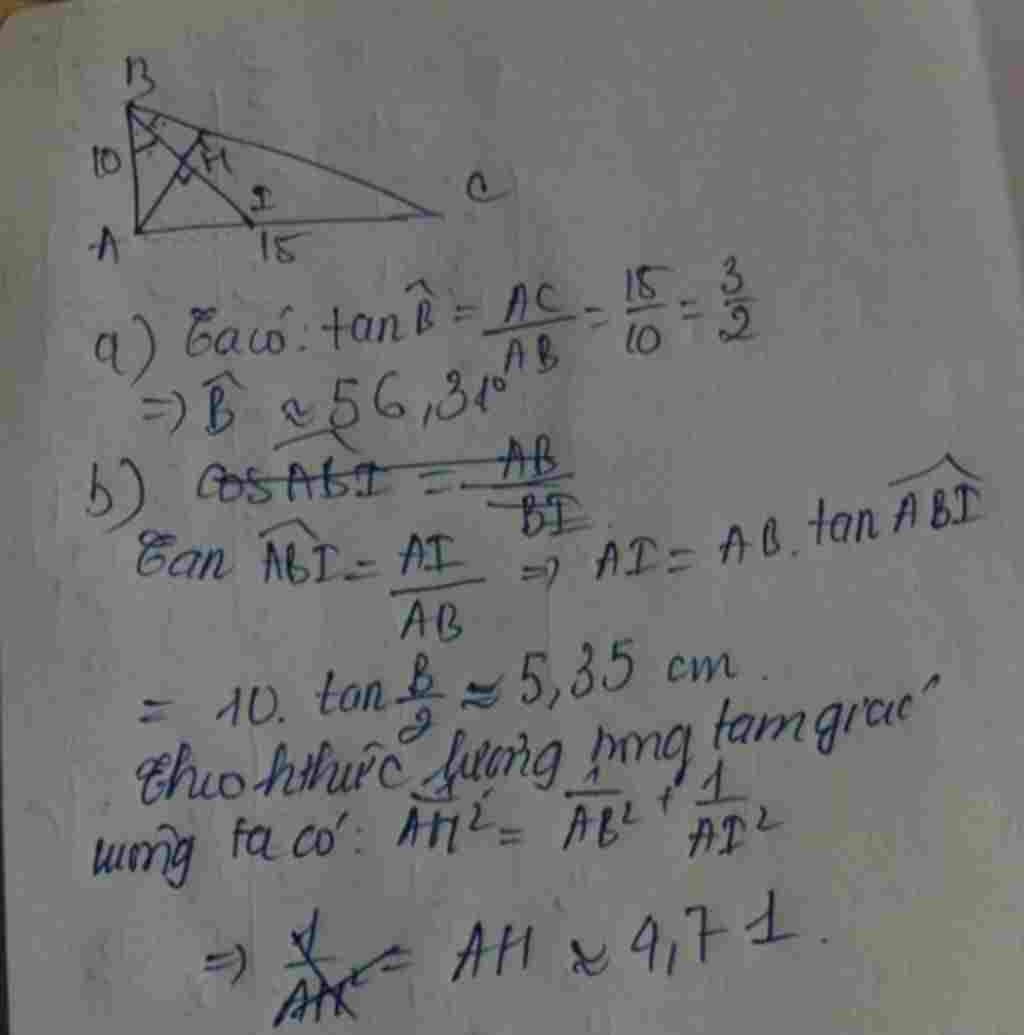 B
10
H
I
C
A
15
a) Ta có: tan B̂ = AC/AB = 15/10 = 3/2
=> B̂ ≈ 56,31°
b) cos ABI = AB/BI
Tan ABI = AI/AB => AI = AB. tan ABI
= 10. tan B/2 ≈ 5,35 cm.
theo hthức lượng trong tam giác
vuông ta có: 1/AH² = 1/AB² + 1/AI²
=> 1/AH² = AH ≈ 4,71.